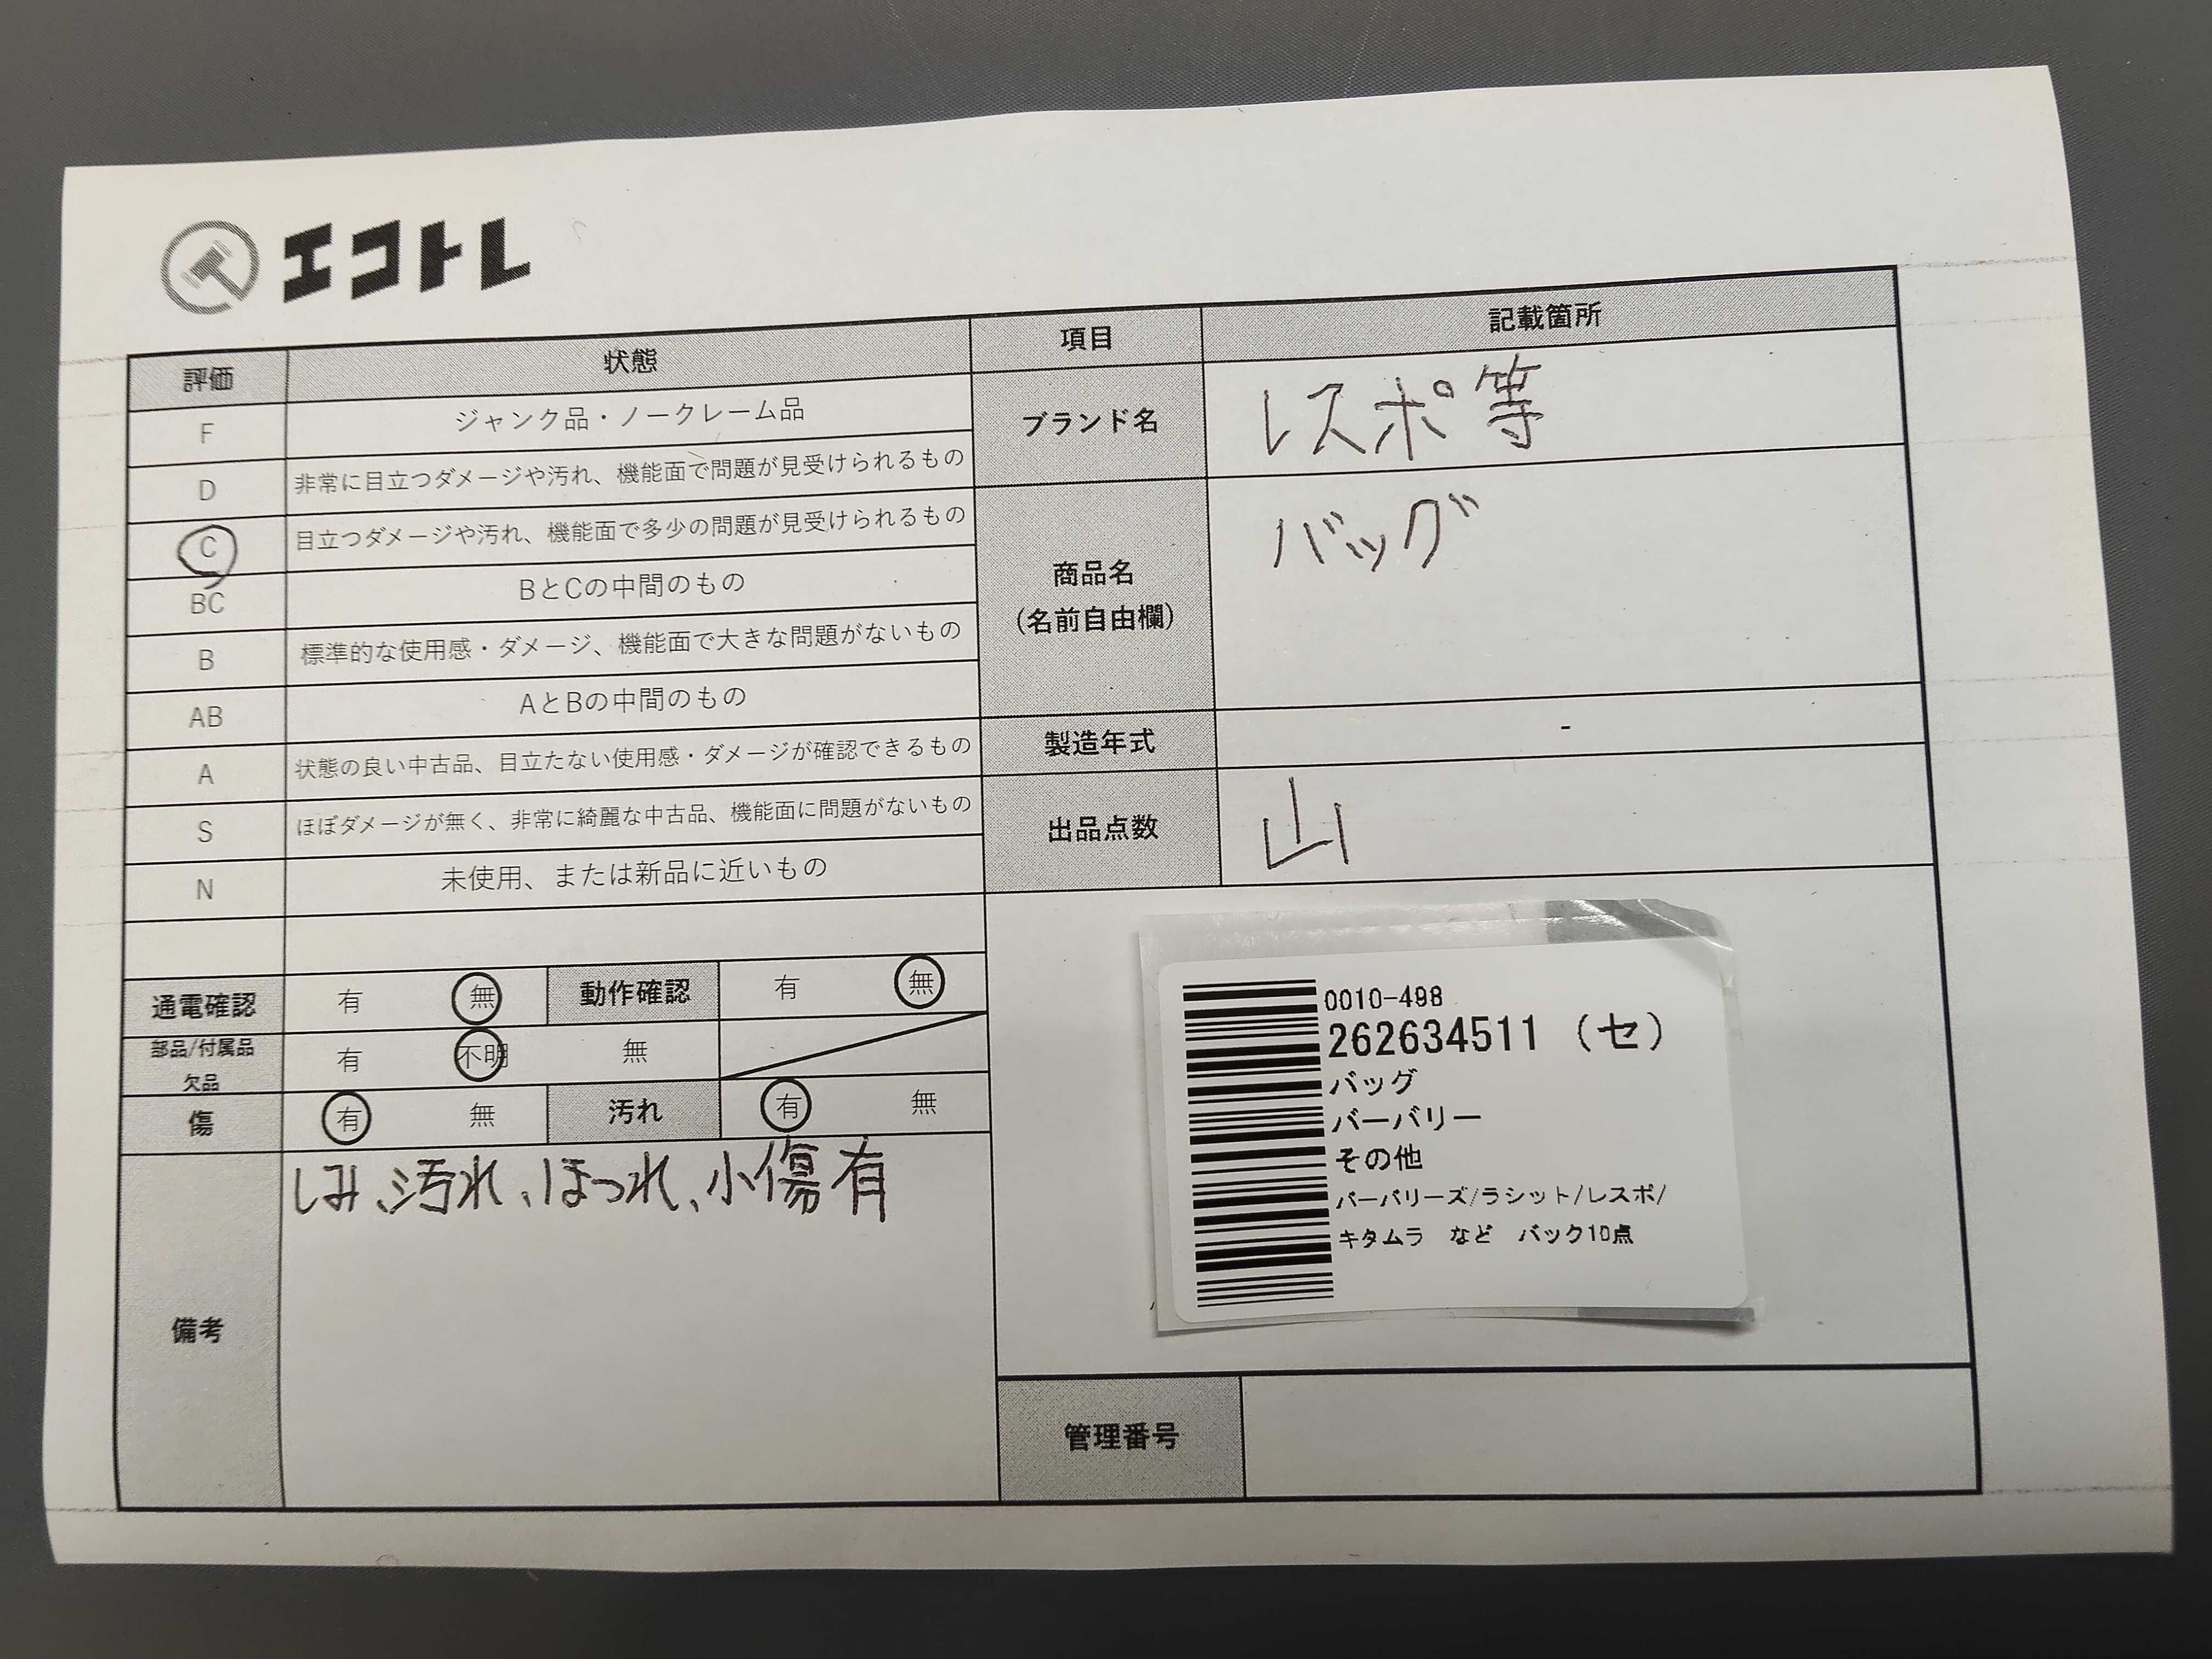 エコトレ
評価 状態 項目 記載箇所
F ジャンク品・ノークレーム品
D 非常に目立つダメージや汚れ、機能面で問題が見受けられるもの
C 目立つダメージや汚れ、機能面で多少の問題が見受けられるもの
BC BとCの中間のもの
B 標準的な使用感・ダメージ、機能面で大きな問題がないもの
AB AとBの中間のもの
A 状態の良い中古品、目立たない使用感・ダメージが確認できるもの
S ほぼダメージが無く、非常に綺麗な中古品、機能面に問題がないもの
N 未使用、または新品に近いもの
通電確認 有 無 動作確認 有 無
部品/付属品
欠品 有 不明 無
傷 有 無 汚れ 有 無
備考 しみ、汚れ、ほつれ、小傷有
ブランド名 レスポ等
商品名
(名前自由欄) バッグ
製造年式 -
出品点数 山
0010-498
262634511 (セ)
バッグ
バーバリー
その他
バーバリーズ/ラシット/レスポ/
キタムラ など バック10点
管理番号